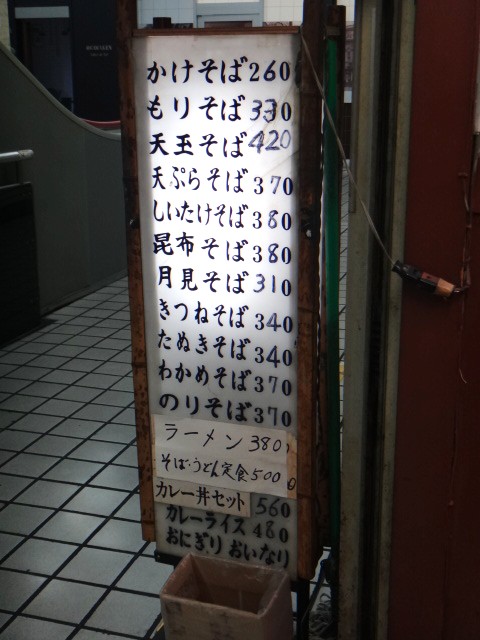 かけそば260
もりそば330
天玉そば420
天ぷらそば370
しいたけそば380
昆布そば380
月見そば310
きつねそば340
たぬきそば340
わかめそば370
のりそば370
ラーメン380
そば・うどん定食500
カレー丼セット560
カレーライス480
おにぎり おいなり